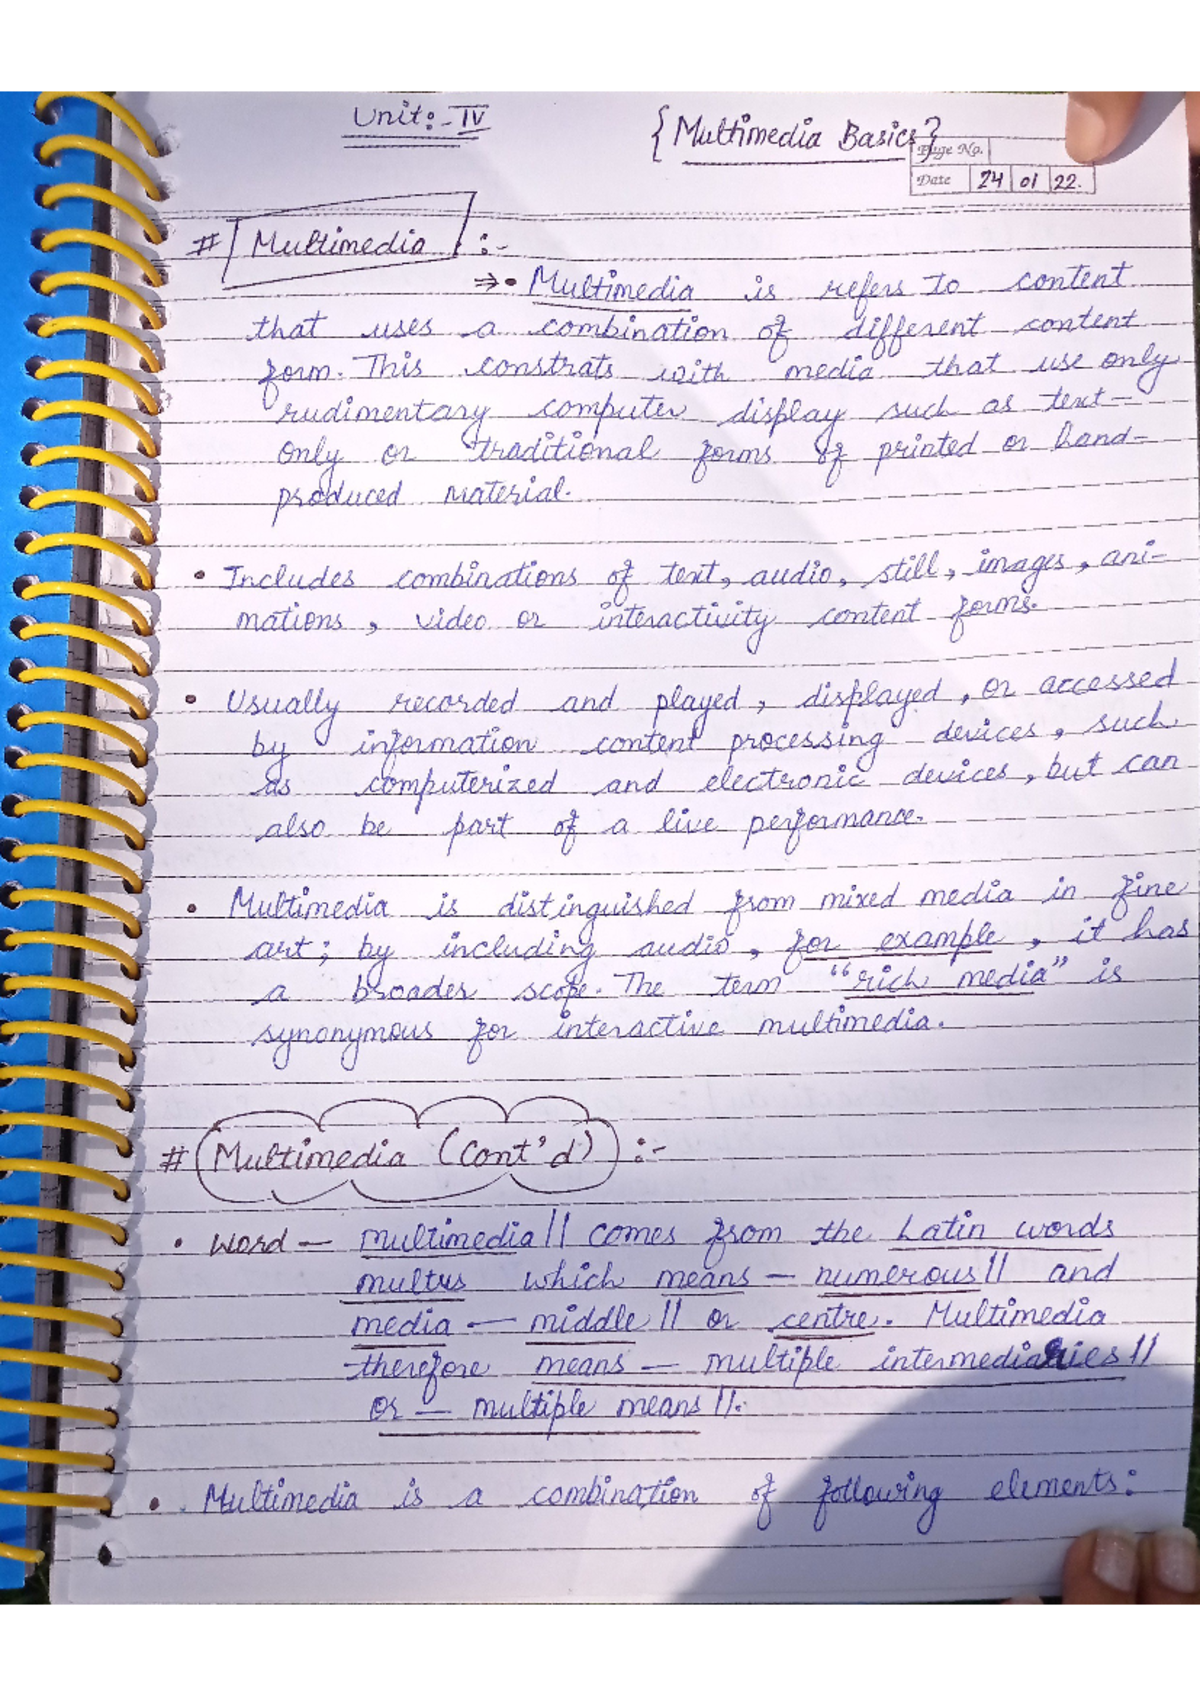 Unit:- IV
{Multimedia Basics}
Page No.
Date 24 01 22.
# Multimedia :-
⇒• Multimedia is refers to content
that uses a combination of different content
form. This constrats with media that use only
rudimentary computer display such as text-
only or traditional forms of printed or hand-
produced material.
• Includes combinations of text, audio, still, images, ani-
mations, video or interactivity content forms.
• Usually recorded and played, displayed, or accessed
by information content processing devices, such
as computerized and electronic devices, but can
also be part of a live performance.
• Multimedia is distinguished from mixed media in fine
art; by including audio, for example, it has
a broader scope. The term "rich media" is
synonymous for interactive multimedia.
# Multimedia (Cont'd) :-
• Word — multimedia|| comes from the Latin words
multus which means — numerous|| and
media — middle|| or centre. Multimedia
therefore means — multiple intermediaries||
or — multiple means||.
• Multimedia is a combination of following elements: